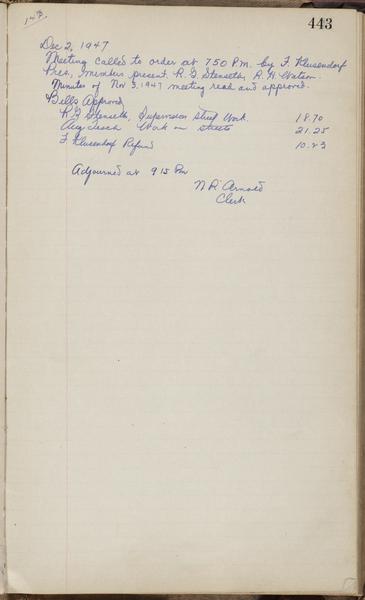 443
Dec 2, 1947
Meeting called to order at 7 50 P.M. by F. Klusendorf
Pres. members present. R. G. Stenseth, R. H. Watson.
Minutes of Nov 3, 1947 meeting read and approved.
Bills Approved
R G Stenseth, Supervision street Work. 18.70
Aug Work on streets 21.25
F Klusendorf Refund 10.23
Adjourned at 9 15 Pm
N R Arnold
Clerk